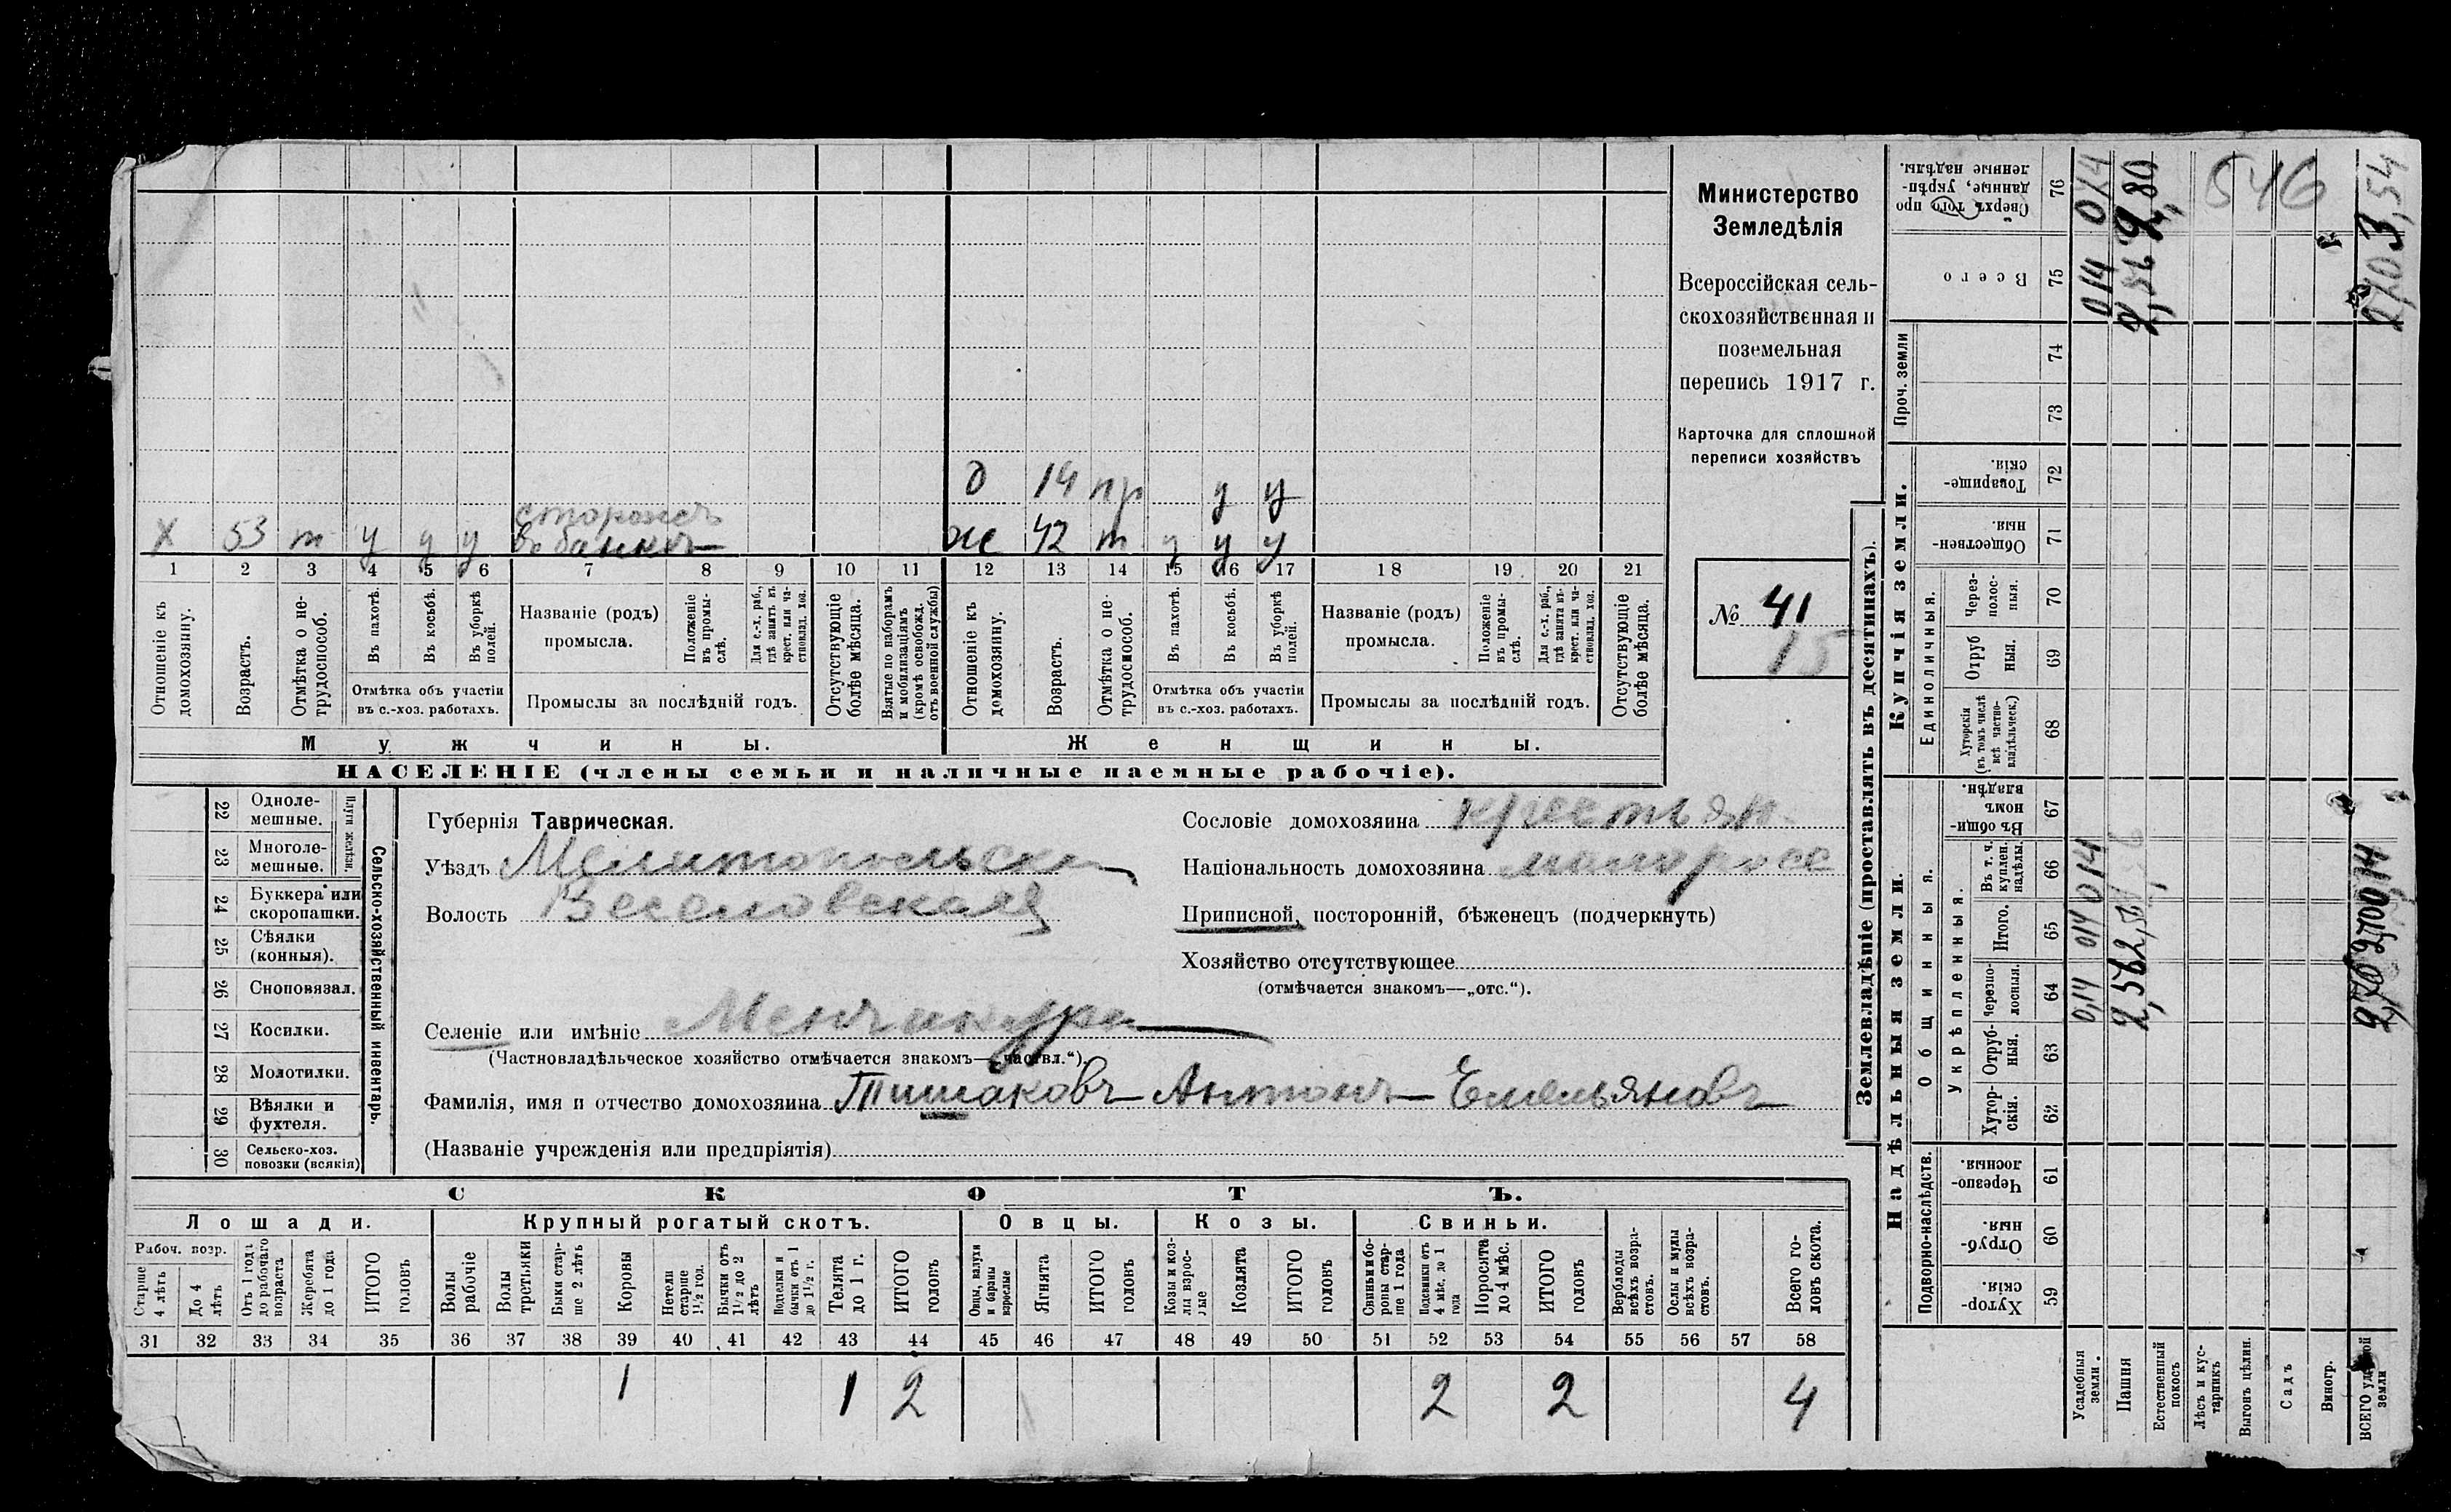 Министерство
Земледѣлія
Всероссійская сель-
скохозяйственная и
поземельная
перепись 1917 г.
Карточка для сплошной
переписи хозяйствъ
№ 41
15
д 14 пр у у
х 53 т у у у сторожъ
въ банкѣ
ж 42 т у у у
1 2 3 4 5 6 7 8 9 10 11 12 13 14 15 16 17 18 19 20 21
Отношеніе къ домохозяину.
Возрастъ.
Отмѣтка о не-трудоспособ.
Въ пахотѣ.
Въ косьбѣ.
Въ уборкѣ полей.
Отмѣтка объ участіи
въ с.-хоз. работахъ.
Названіе (родъ)
промысла.
Положеніе въ промы-слѣ.
Для с.-х. раб., гдѣ занятъ въ крест. или ча-стновлад. хоз.
Промыслы за послѣдній годъ.
Отсутствующіе болѣе мѣсяца.
Взятые по наборамъ и мобилизаціямъ (кромѣ освобожд. отъ военной службы)
Отношеніе къ домохозяину.
Возрастъ.
Отмѣтка о не-трудоспособ.
Въ пахотѣ.
Въ косьбѣ.
Въ уборкѣ полей.
Отмѣтка объ участіи
въ с.-хоз. работахъ.
Названіе (родъ)
промысла.
Положеніе въ промы-слѣ.
Для с.-х. раб., гдѣ занятъ въ крест. или ча-стновлад. хоз.
Промыслы за послѣдній годъ.
Отсутствующіе болѣе мѣсяца.
Мужчины. Женщины.
НАСЕЛЕНІЕ (члены семьи и наличные наемные рабочіе).
22 Одноле-мешные.
23 Многоле-мешные.
Плуги желѣзн.
24 Буккера или скоропашки.
25 Сѣялки (конныя).
26 Сноповязал.
27 Косилки.
28 Молотилки.
29 Вѣялки и фухтеля.
30 Сельско-хоз. повозки (всякія)
Сельско-хозяйственный инвентарь.
Губернія Таврическая.
Уѣздъ Мелитопольск
Волость Веселовская
Селеніе или имѣніе Менчикура
(Частновладѣльческое хозяйство отмѣчается знакомъ—„частвл.“).
Фамилія, имя и отчество домохозяина Тишаковъ Антонъ Емельяновъ
(Названіе учрежденія или предпріятія)
Сословіе домохозяина крестьян.
Національность домохозяина малоросс
Приписной, посторонній, бѣженецъ (подчеркнуть)
Хозяйство отсутствующее
(отмѣчается знакомъ—„отс.“).
СКОТЪ.
Лошади. Крупный рогатый скотъ. Овцы. Козы. Свиньи.
Рабоч. возр.
Старше 4 лѣтъ
До 4 лѣтъ
Отъ 1 года до рабочаго возраста
Жеребята до 1 года
ИТОГО головъ
Волы рабочіе
Волы третьяки
Быки стар-ше 2 лѣтъ
Коровы
Нетели старше 1½ год.
Бычки отъ 1½ до 2 лѣтъ
Подтелки и бычки отъ 1 до 1½ г.
Телята до 1 г.
ИТОГО головъ
Овцы, валухи и бараны взрослые
Ягнята
ИТОГО головъ
Козы и коз-лы взрос-лые
Козлята
ИТОГО головъ
Свиньи и бо-ровы стар-ше 1 года
Подсвинки отъ 4 мѣс. до 1 года
Поросята до 4 мѣс.
ИТОГО головъ
Верблюды всѣхъ возра-стовъ.
Ослы и мулы всѣхъ возра-стовъ.
Всего го-ловъ скота.
31 32 33 34 35 36 37 38 39 40 41 42 43 44 45 46 47 48 49 50 51 52 53 54 55 56 57 58
1 1 2 2 2 4
Землевладѣніе (проставлять въ десятинахъ).
Надѣльныя земли. Купчія земли. Проч. земли
Подворно-наслѣдств.
Общинныя.
Укрѣпленныя.
Единоличныя.
Хутор-скія. 59
Отруб-ныя. 60
Черезпо-лосныя. 61
Хутор-скія. 62
Отруб-ныя. 63
Черезпо-лосныя. 64
Итого. 65
Въ т. ч. куплен. надѣлы. 66
Въ общин-номъ владѣн. 67
Хуторскія (въ томъ числѣ всѣ частно-владѣльческ.) 68
Отрубныя. 69
Через-полос-ныя. 70
Обществен-ныя. 71
Товарище-скія. 72
73
74
Всего 75
Сверхъ того про-данные, укрѣп-ленные надѣлы. 76
Усадебныя земли. 0,14 014 014 014 014
Пашня 2,562
Естественный покосъ
Лѣсъ и кус-тарникъ
Выгонъ цѣлин.
Садъ
Виногр.
ВСЕГО удобной земли
546